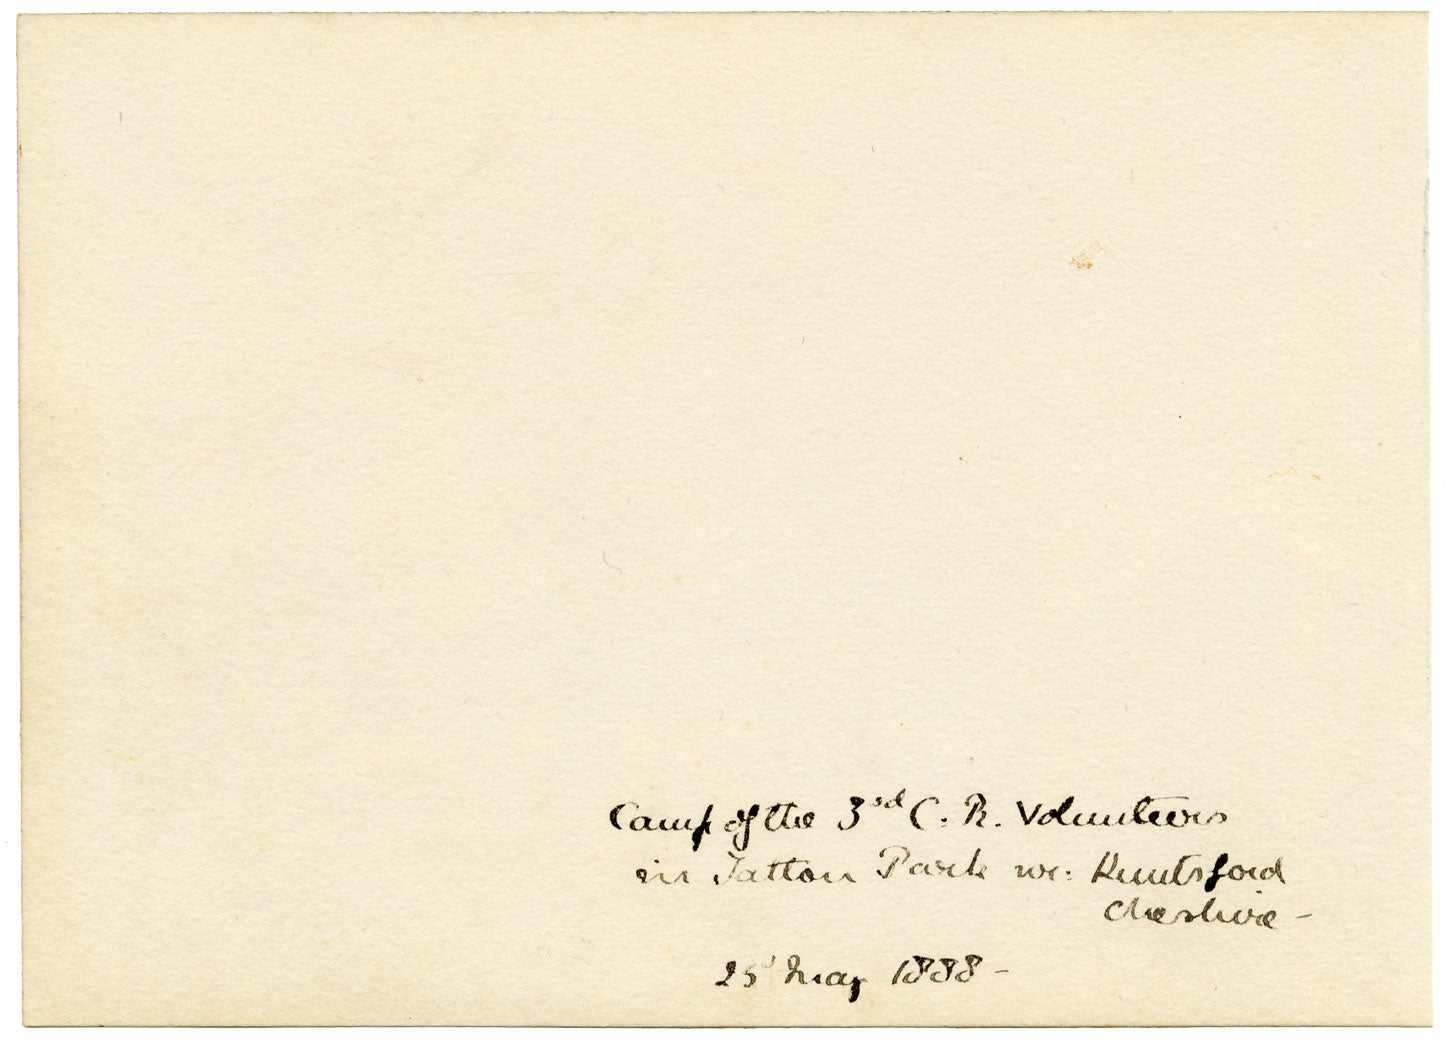 Camp of the 3rd C. R. Volunteers
in Tatton Park nr: Knutsford
Cheshire -
25 May 1888 -